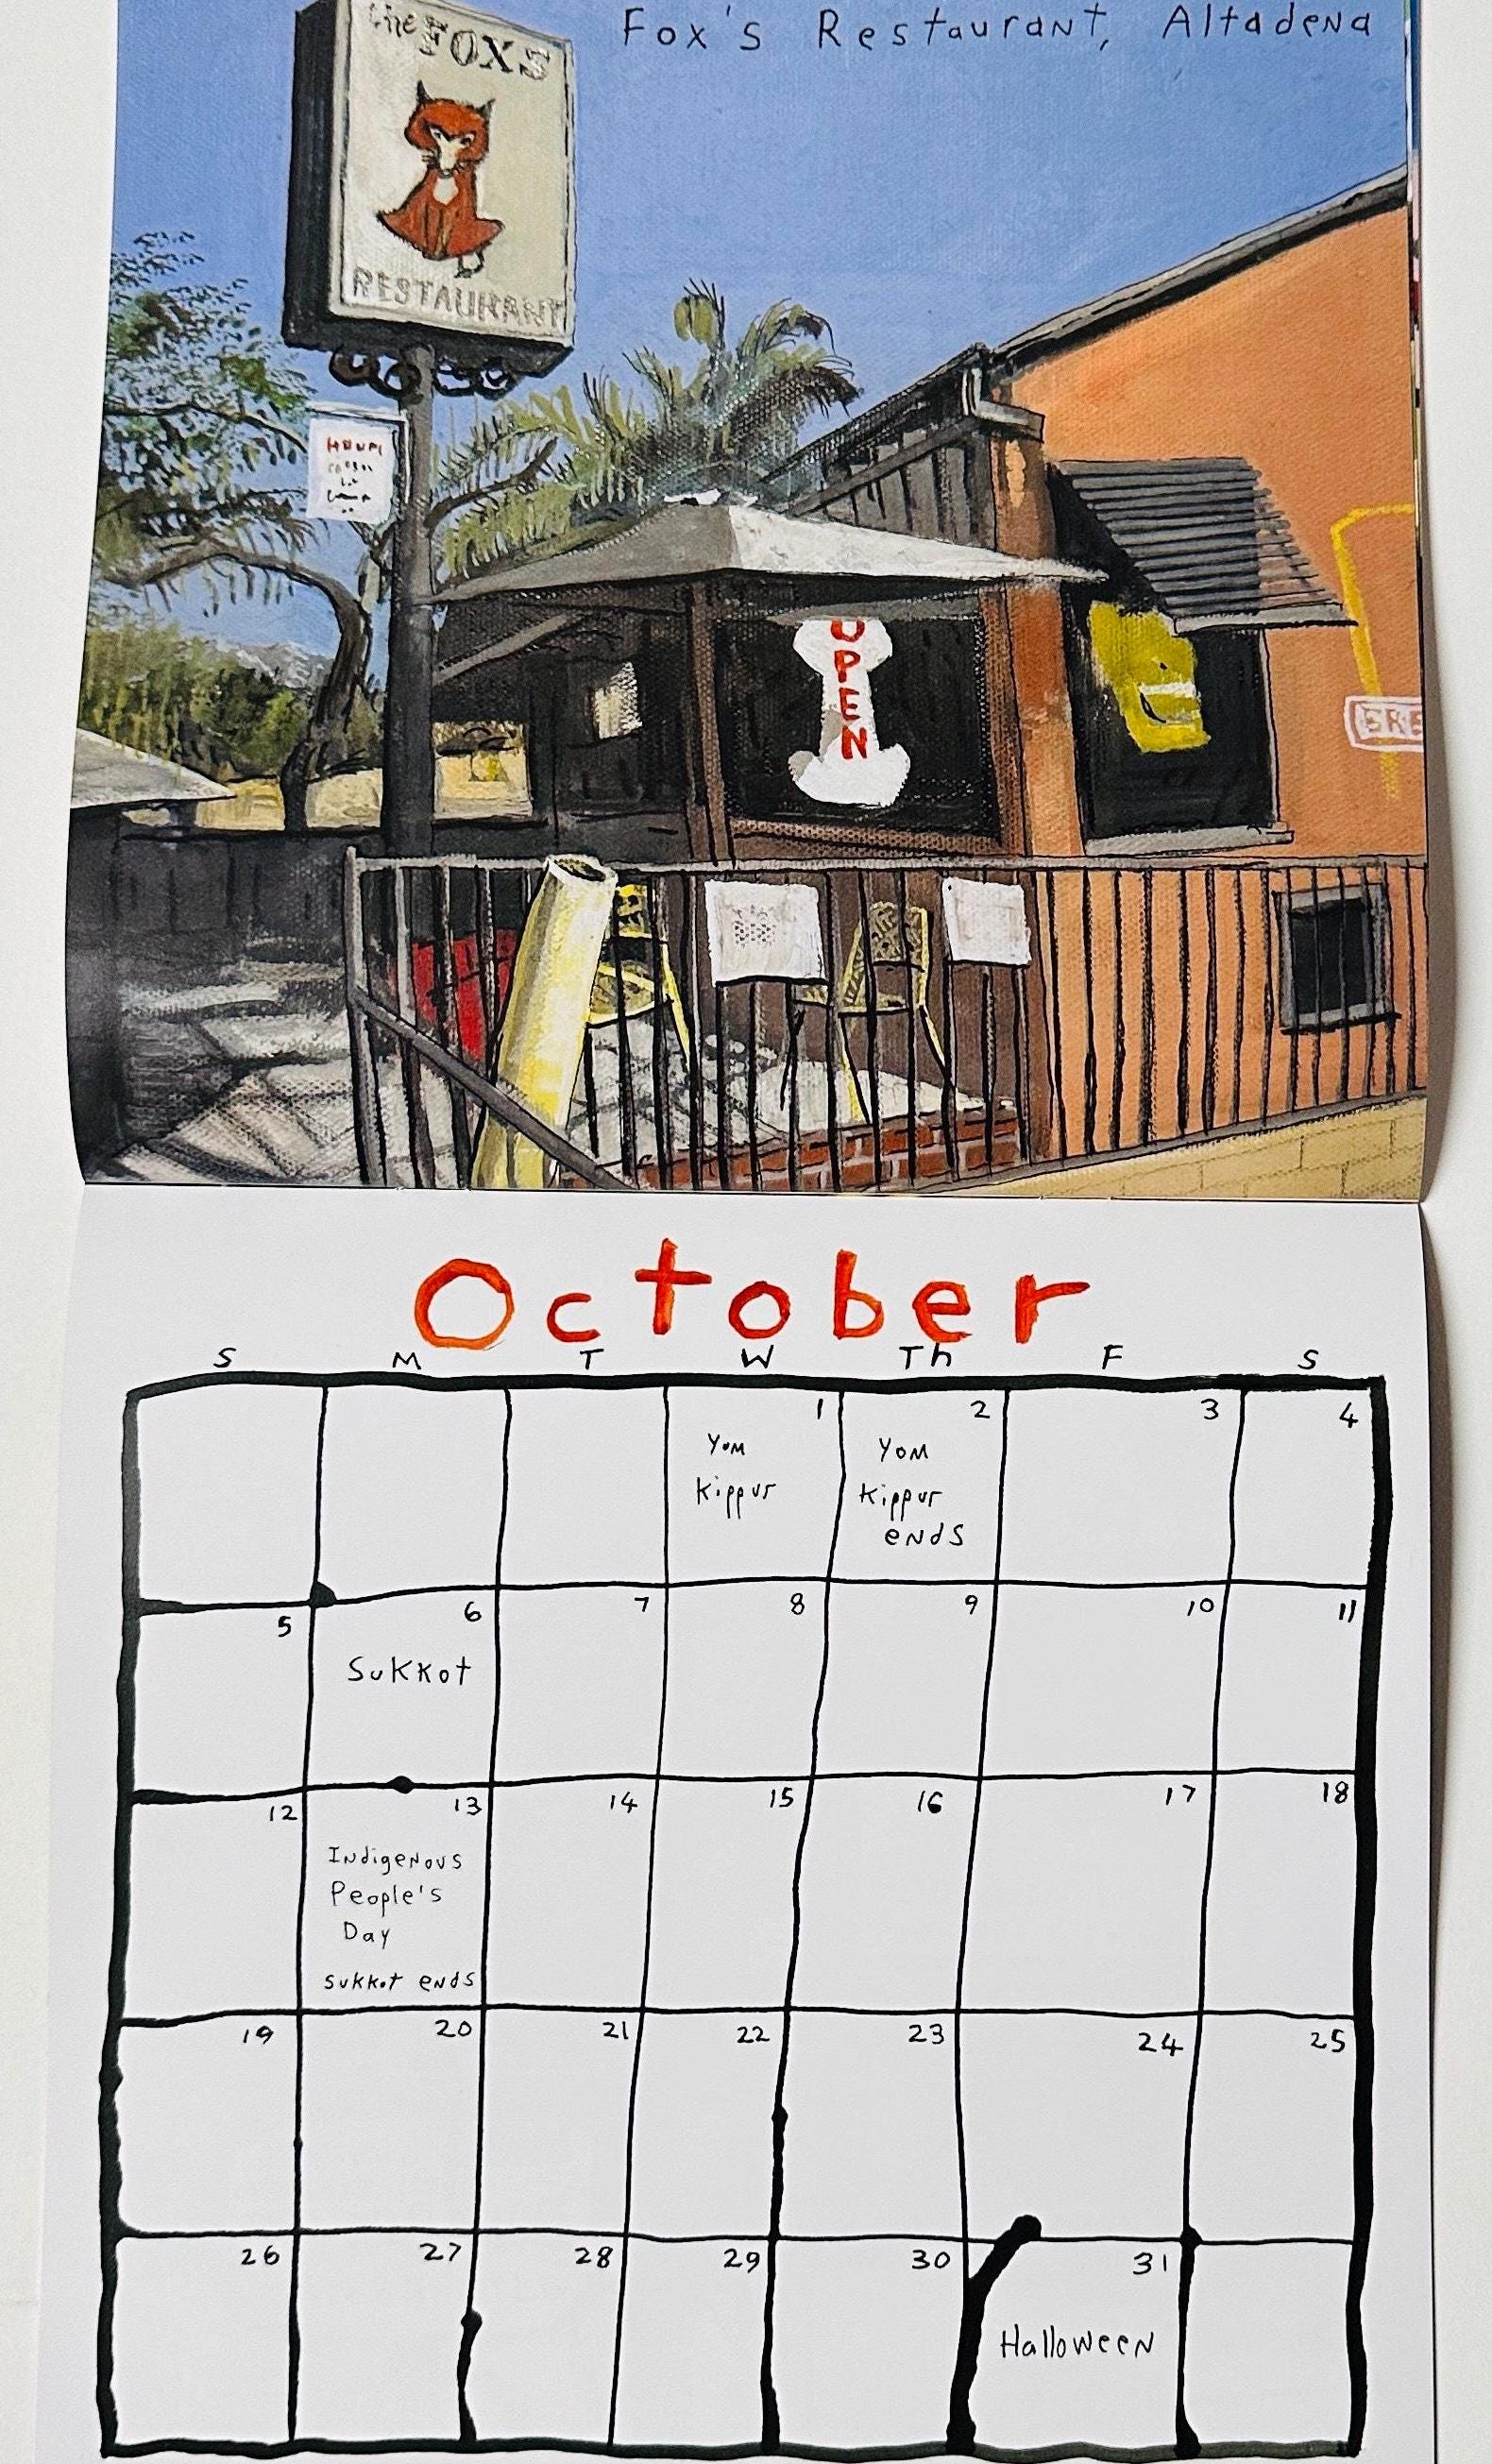 Fox's Restaurant, Altadena
the FOXS
RESTAURANT
OPEN
October
S M T W Th F S
1 2 3 4
Yom
Kippur
Yom
Kippur
ends
5 6 7 8 9 10 11
Sukkot
12 13 14 15 16 17 18
Indigenous
People's
Day
sukkot ends
19 20 21 22 23 24 25
26 27 28 29 30 31
Halloween